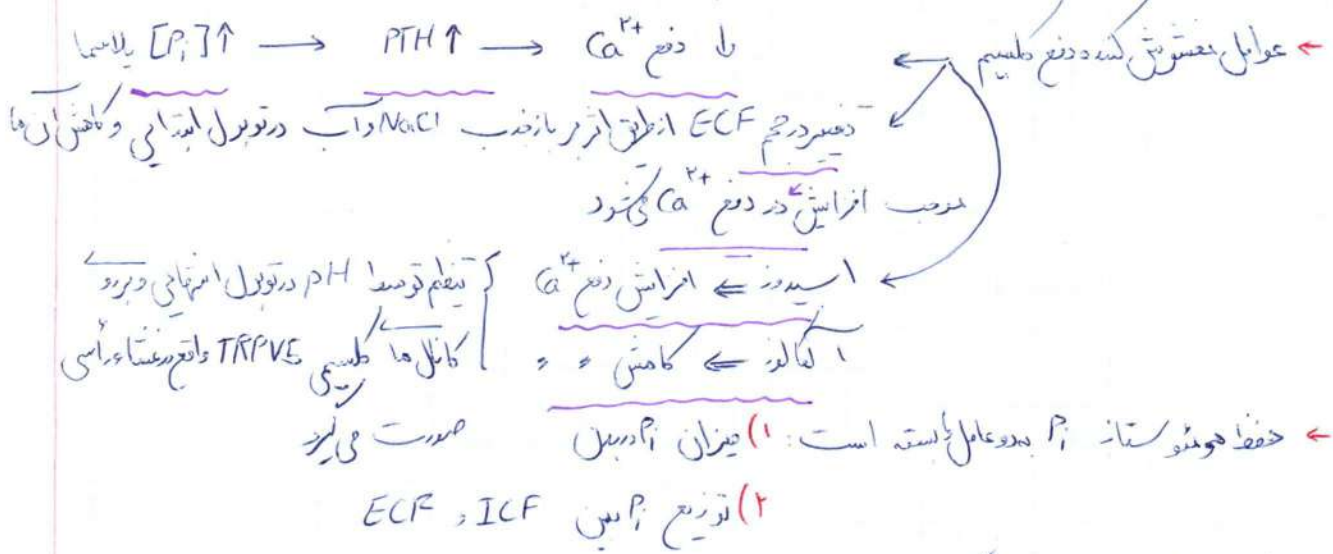 ← عوامل مغشوش کننده دفع کلسیم ← پلاسما [Pi]↑ → PTH↑ → Ca²⁺ دفع ↓
تغییر در حجم ECF از طریق اثر بر بازجذب NaCl و آب در توبول ابتدایی و کاهش آن ها
موجب افزایش در دفع Ca²⁺ می شود
اسیدوز ⇐ افزایش دفع Ca²⁺ } تنظیم توسط pH در توبول انتهایی و بر روی
آلکالوز ⇐ کاهش 〃 〃 کانال ها کلسیمی TRPV5 واقع در غشاء رأسی
صورت می گیرد
← حفظ هومئوستاز Pi به دو عامل وابسته است: ۱) میزان Pi در بدن
۲) توزیع Pi بین ICF و ECF